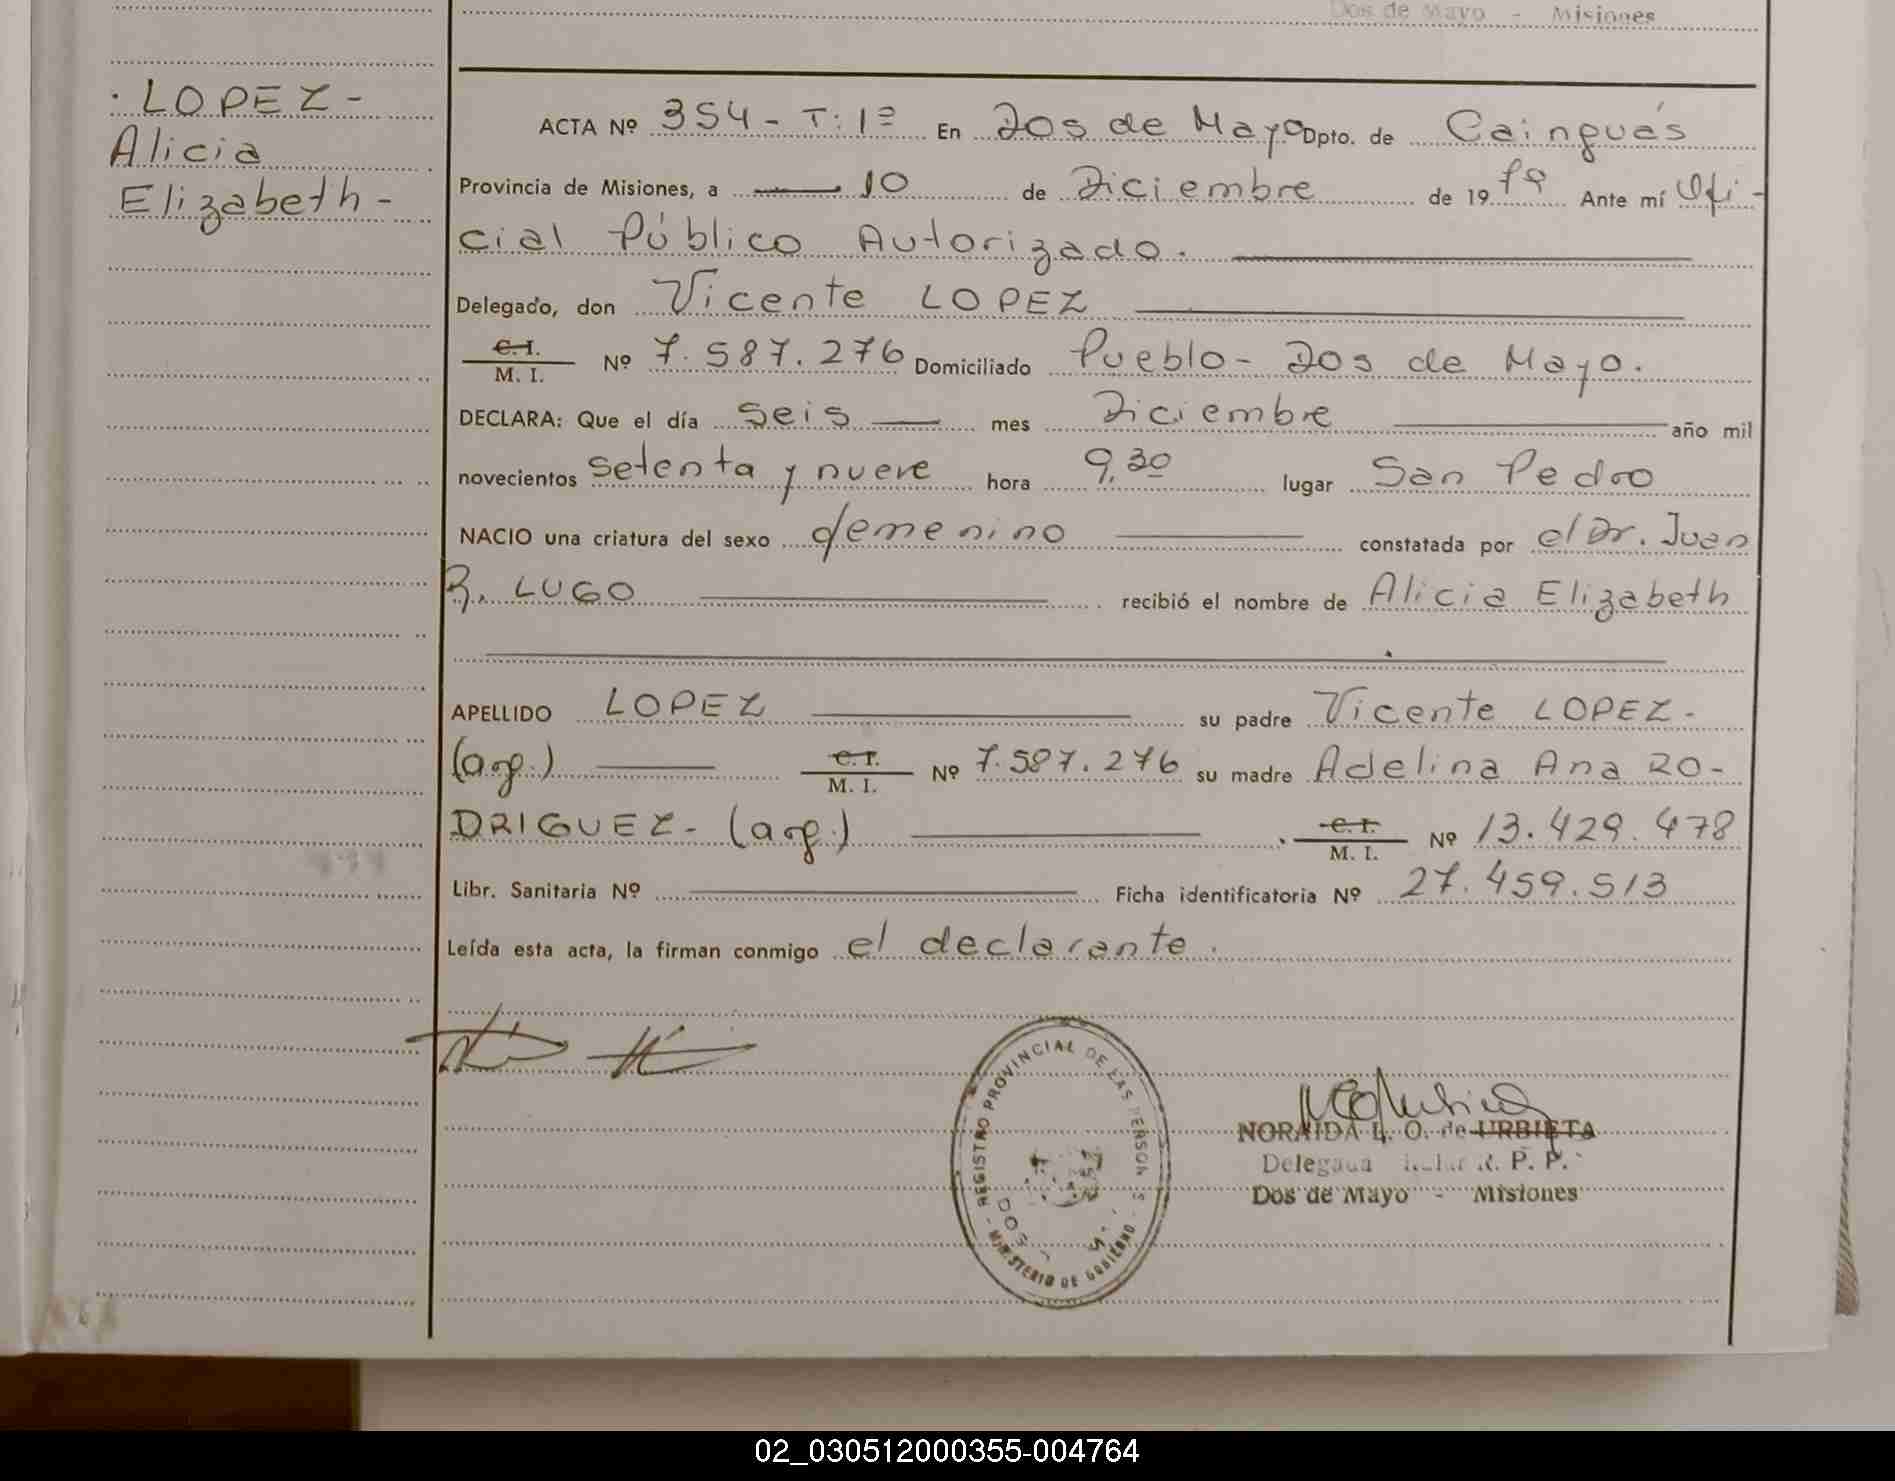 Dos de Mayo - Misiones
· LOPEZ -
Alicia
Elizabeth -
ACTA Nº 354 - T: 1º En Dos de Mayo Dpto. de Cainguás
Provincia de Misiones, a 10 de Diciembre de 19 79 Ante mí Ofi-
cial Público Autorizado.
Delegado, don Vicente LOPEZ
C. I.
M. I. Nº 7.587.276 Domiciliado Pueblo - Dos de Mayo.
DECLARA: Que el día seis mes Diciembre año mil
novecientos setenta y nueve hora 9,30 lugar San Pedro
NACIO una criatura del sexo femenino constatada por el Dr. Juan
R. LUGO recibió el nombre de Alicia Elizabeth
APELLIDO LOPEZ su padre Vicente LOPEZ -
(arg.) C. I.
M. I. Nº 7.587.276 su madre Adelina Ana RO-
DRIGUEZ - (arg.) C. I.
M. I. Nº 13.429.478
Libr. Sanitaria Nº Ficha identificatoria Nº 27.459.513
Leída esta acta, la firman conmigo el declarante.
REGISTRO PROVINCIAL DE LAS PERSONAS
DOS
MINISTERIO DE GOBIERNO
NORAIDA L. O. de URBIETA
Delegada R. P. P.
Dos de Mayo - Misiones
02_030512000355-004764